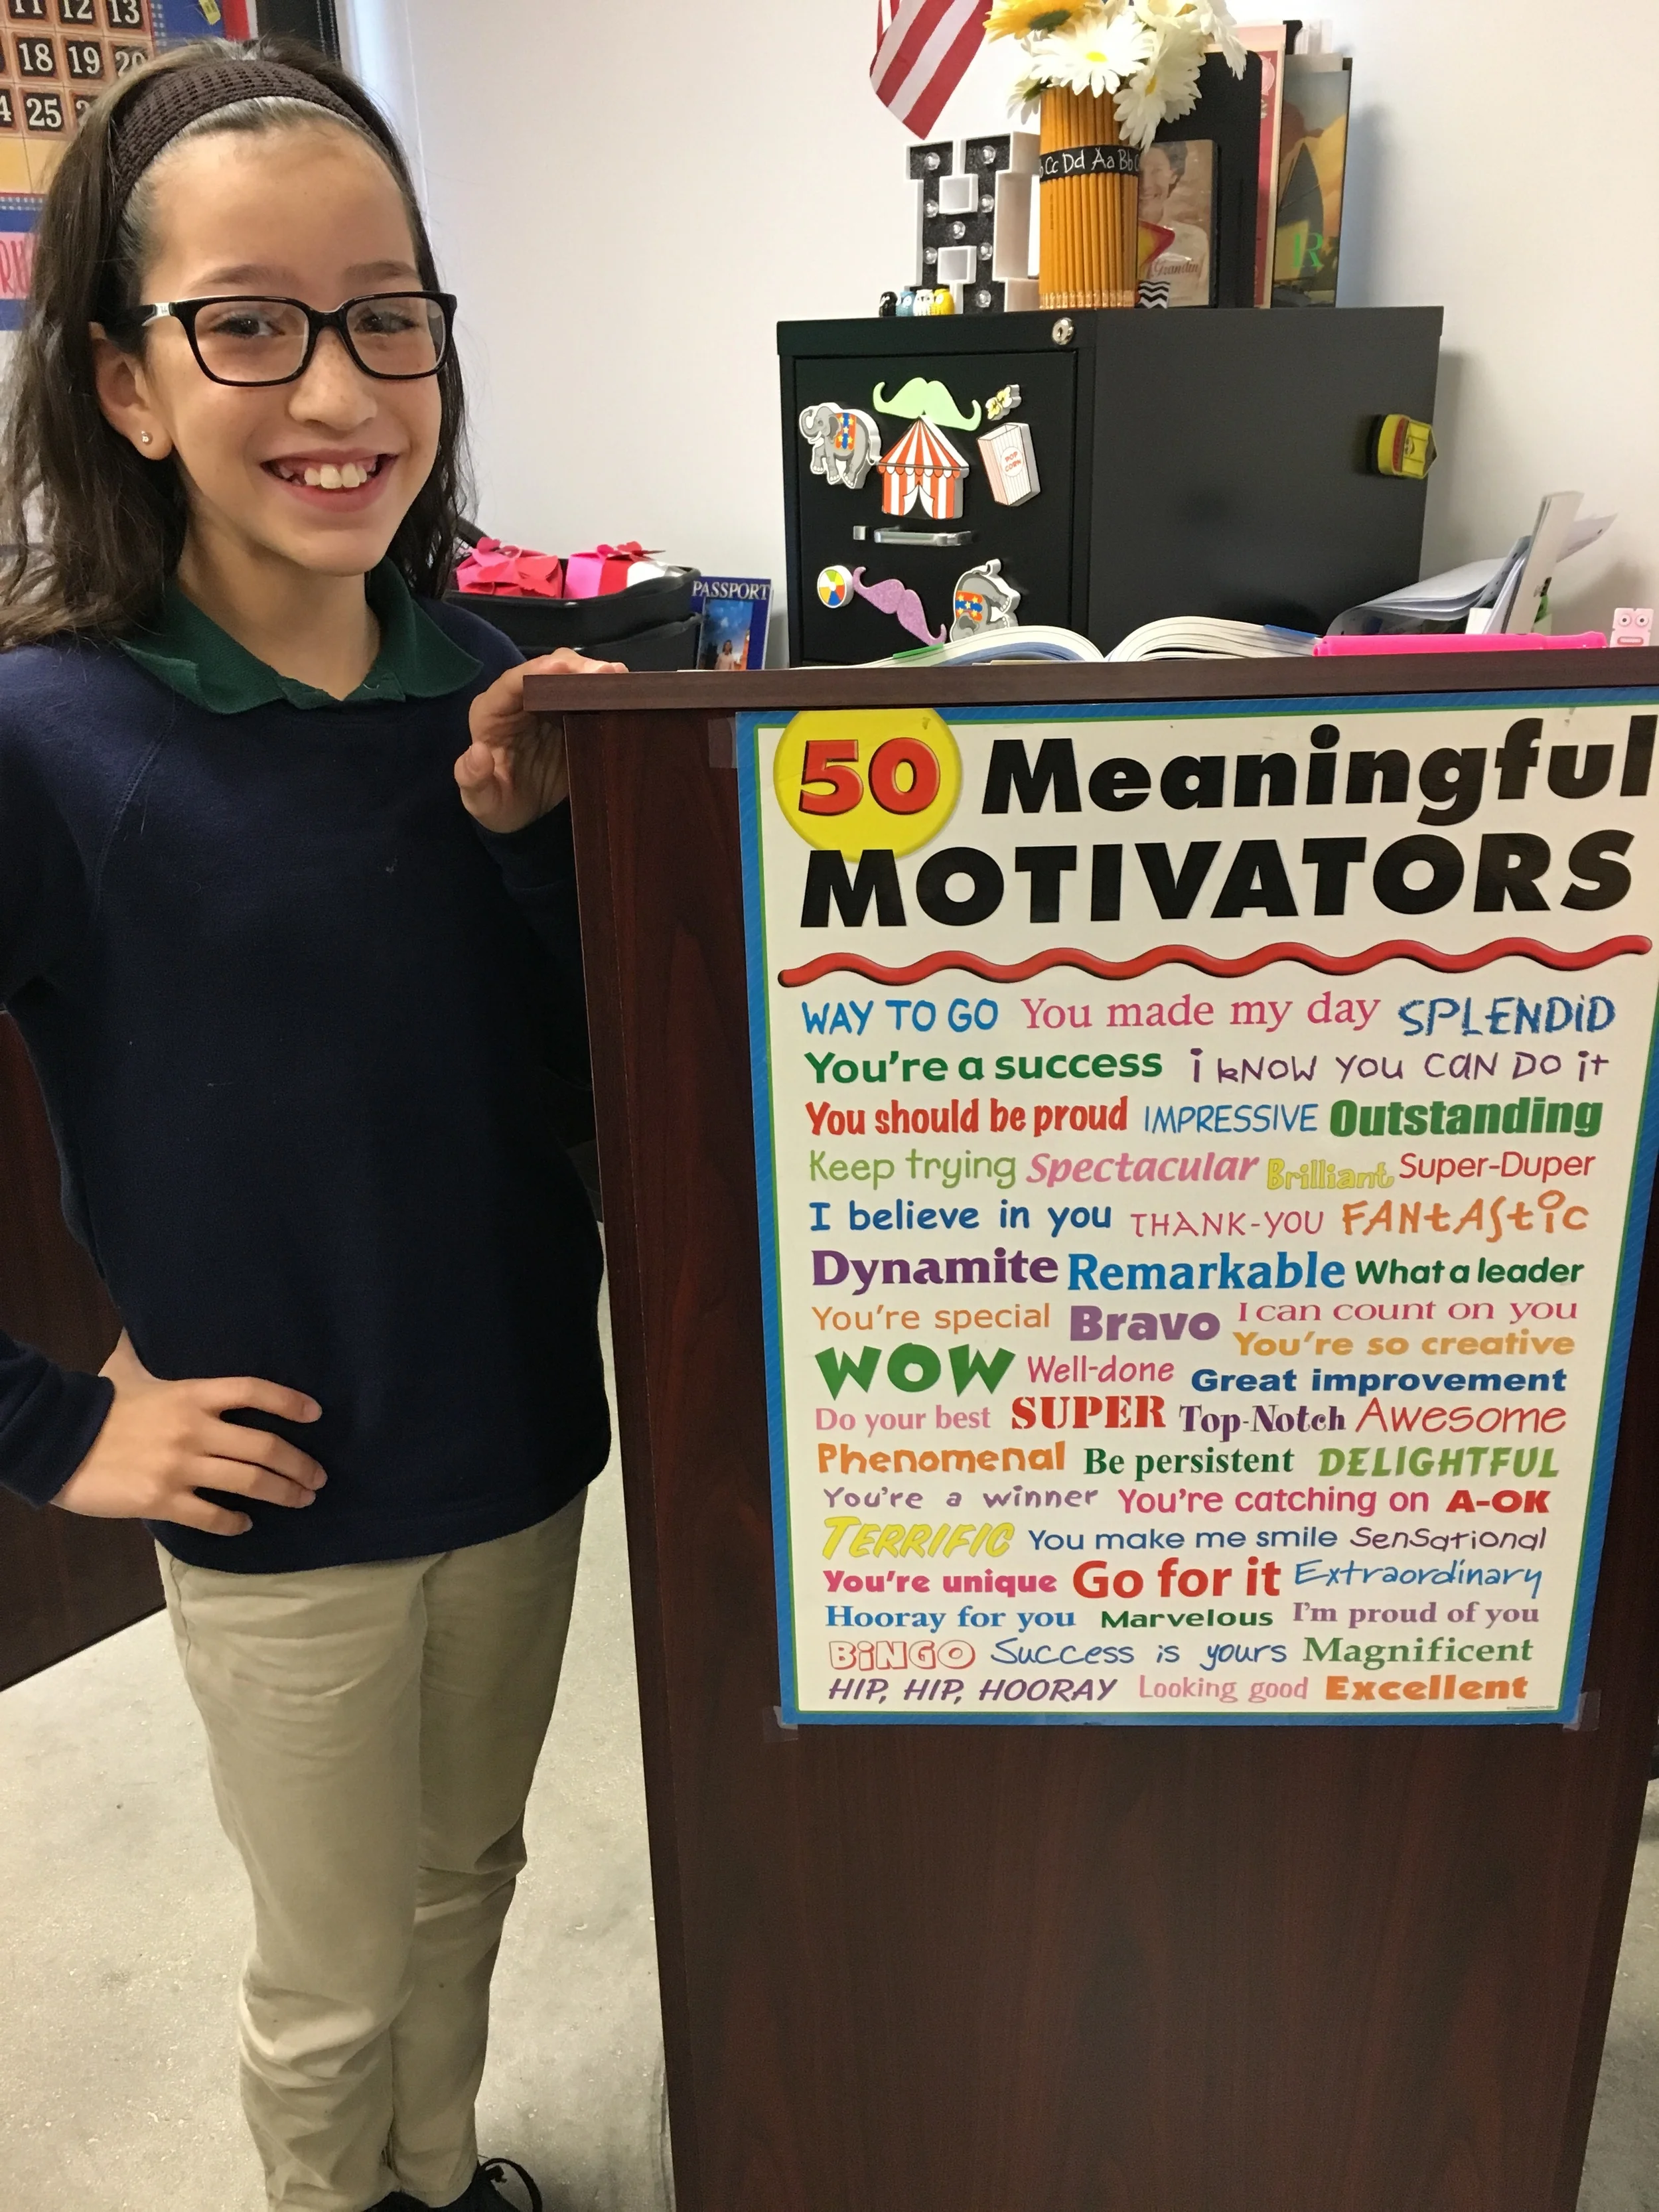 11 12 13
18 19 20
25
Cc Dd Aa Bb
H
Grandm
R
POP
CORN
PASSPORT
50 Meaningful
MOTIVATORS
WAY TO GO You made my day SPLENDiD
You're a success i kNOW YOU CAN DO it
You should be proud IMPRESSIVE Outstanding
Keep trying Spectacular Brilliant Super-Duper
I believe in you THANK-YOU FANtAStiC
Dynamite Remarkable What a leader
You're special Bravo I can count on you
You're so creative
WOW Well-done Great improvement
Do your best SUPER Top-Notch Awesome
Phenomenal Be persistent DELIGHTFUL
You're a winner You're catching on A-OK
TERRIFIC You make me smile SenSational
You're unique Go for it Extraordinary
Hooray for you Marvelous I'm proud of you
BiNGO Success is yours Magnificent
HIP, HIP, HOORAY Looking good Excellent